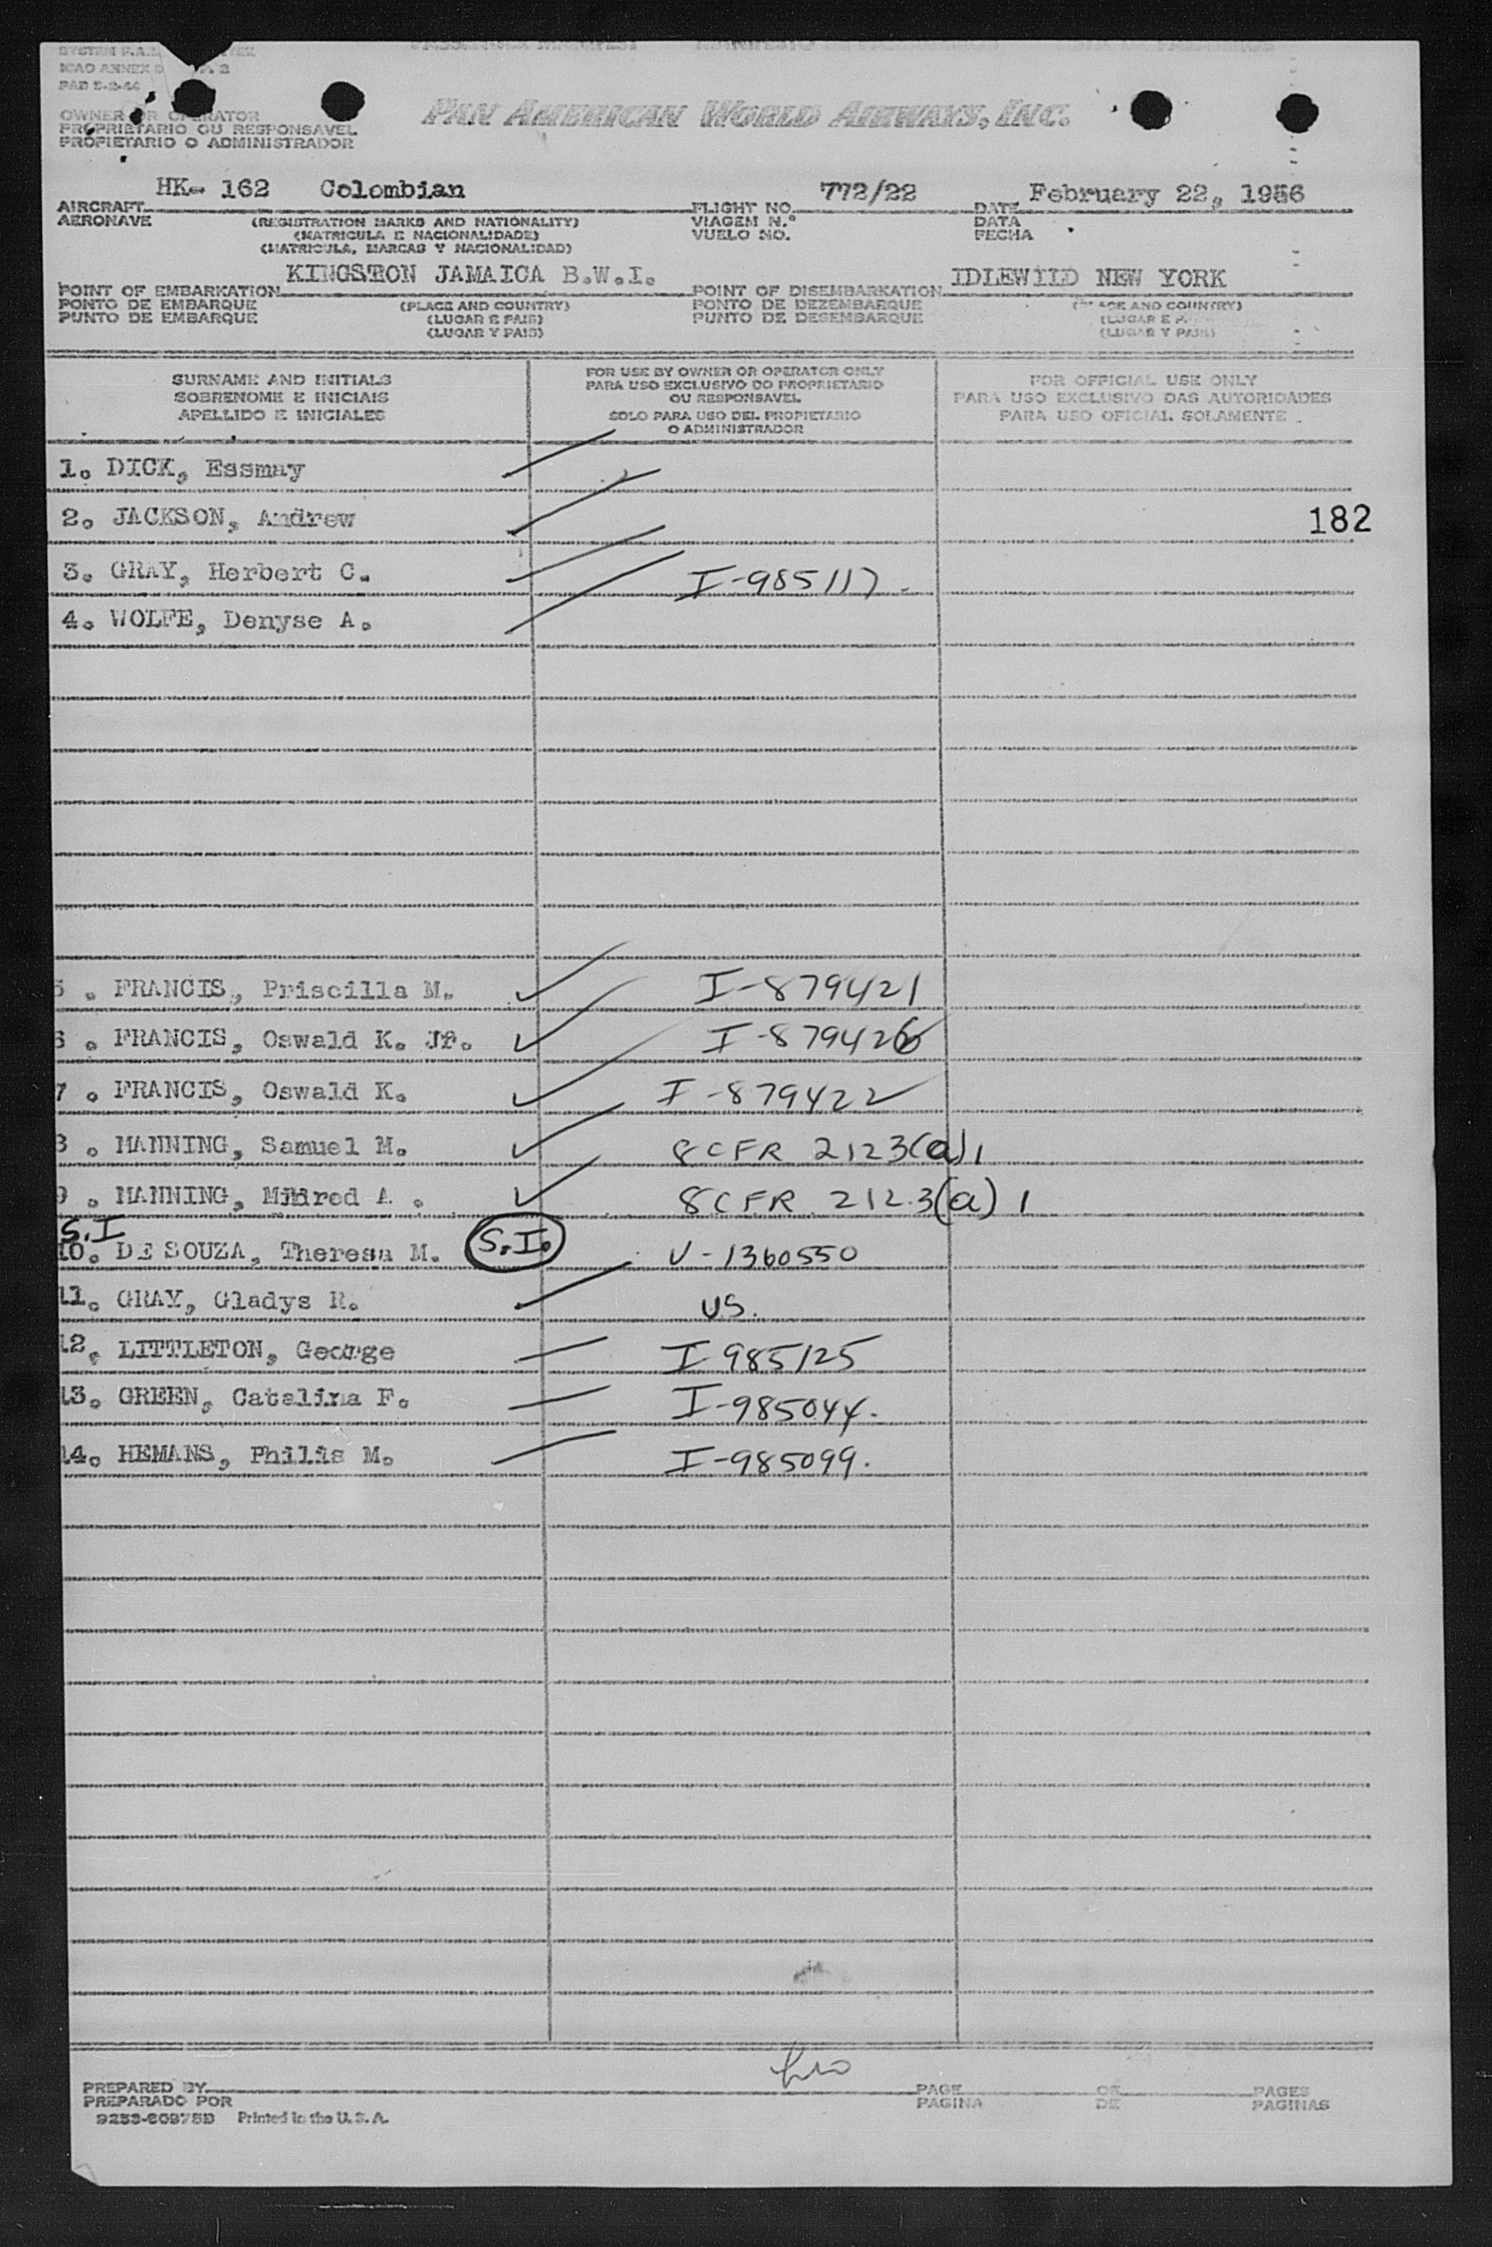 ICAO ANNEX 9
PAD 5-2-46
OWNER OR OPERATOR
PROPRIETARIO OU RESPONSAVEL
PROPIETARIO O ADMINISTRADOR
PAN AMERICAN WORLD AIRWAYS, INC.
HK- 162 Colombian 772/22 February 22, 1956
AIRCRAFT FLIGHT NO. DATE
AERONAVE (REGISTRATION MARKS AND NATIONALITY) VIAGEM N.º DATA
(MATRICULA E NACIONALIDADE) VUELO NO. FECHA
(MATRICULA, MARCAS Y NACIONALIDAD)
KINGSTON JAMAICA B.W.I. IDLEWILD NEW YORK
POINT OF EMBARKATION POINT OF DISEMBARKATION
PONTO DE EMBARQUE (PLACE AND COUNTRY) PONTO DE DEZEMBARQUE (PLACE AND COUNTRY)
PUNTO DE EMBARQUE (LUGAR E PAIS) PUNTO DE DESEMBARQUE (LUGAR E P
(LUGAR Y PAIS) (LUGAR Y PAIS)
SURNAME AND INITIALS
SOBRENOME E INICIAIS
APELLIDO E INICIALES
FOR USE BY OWNER OR OPERATOR ONLY
PARA USO EXCLUSIVO DO PROPRIETARIO
OU RESPONSAVEL
SOLO PARA USO DEL PROPIETARIO
O ADMINISTRADOR
FOR OFFICIAL USE ONLY
PARA USO EXCLUSIVO DAS AUTORIDADES
PARA USO OFICIAL SOLAMENTE
1. DICK, Essmay
2. JACKSON, Andrew 182
3. GRAY, Herbert C. I-985117.
4. WOLFE, Denyse A.
5 . FRANCIS, Priscilla M. I-879421
6 . FRANCIS, Oswald K. Jr. I-879426
7 . FRANCIS, Oswald K. I-879422
8 . MANNING, Samuel M. 8 CFR 212 3(a) 1
9 . MANNING, Mildred A . 8 CFR 212.3(a) 1
S.I
10. DE SOUZA, Theresa M. S.I. V-1360550
11. GRAY, Gladys R. US.
12. LITTLETON, George I 985125
13. GREEN, Catalina F. I-985044.
14. HEMANS, Phillis M. I-985099.
PREPARED BY PAGE OF PAGES
PREPARADO POR PAGINA DE PAGINAS
9253-60975D Printed in the U. S. A.